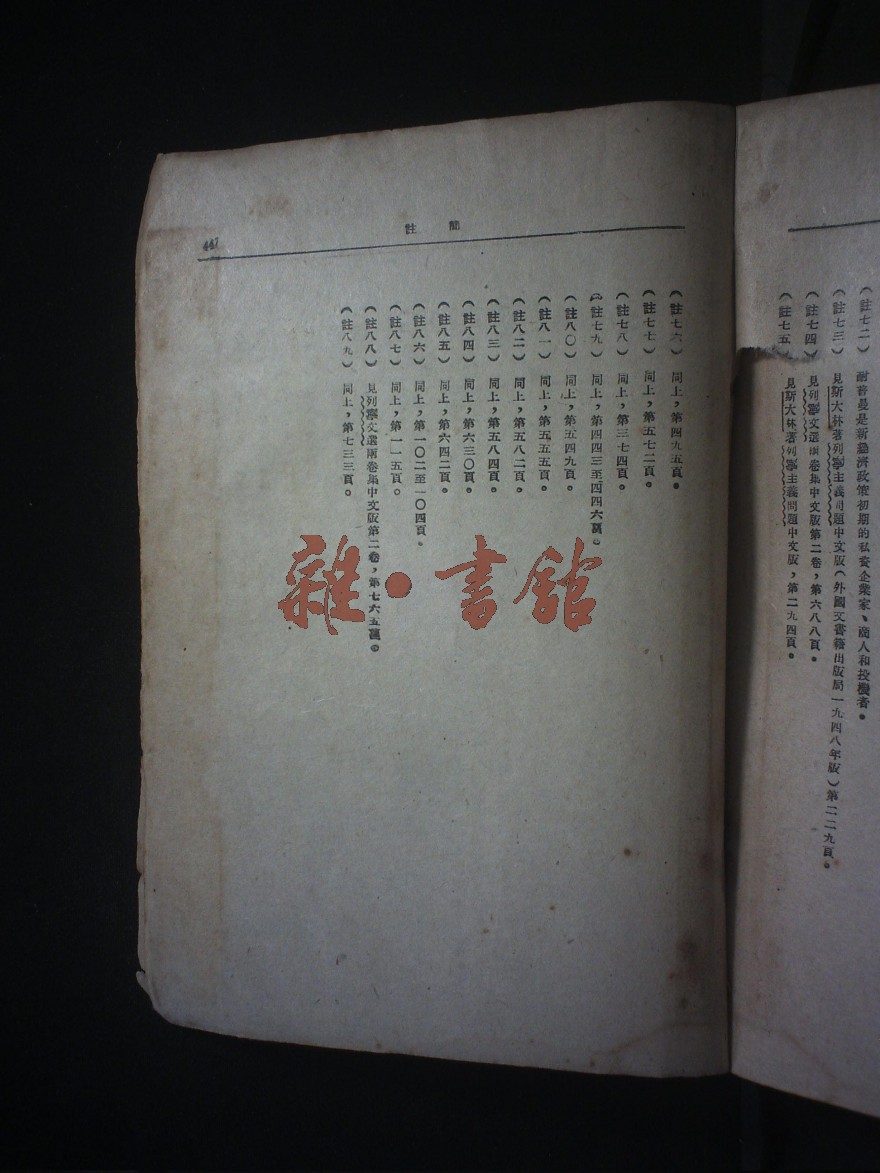 （註七二）　耐普曼是新經濟政策初期的私資企業家、商人和投機者。
（註七三）　見斯大林著列寧主義問題中文版（外國文書籍出版局一九四八年版）第二二九頁。
（註七四）　見列寧文選兩卷集中文版第二卷，第六八八頁。
（註七五　見斯大林著列寧主義問題中文版，第二九四頁。
簡註
447
（註七六）　同上，第四九五頁。
（註七七）　同上，第五七二頁。
（註七八）　同上，第三七四頁。
（註七九）　同上，第四四三至四四六頁。
（註八〇）　同上，第五四九頁。
（註八一）　同上，第五五五頁。
（註八二）　同上，第五八二頁。
（註八三）　同上，第五八四頁。
（註八四）　同上，第六三〇頁。
（註八五）　同上，第六四二頁。
（註八六）　同上，第一〇二至一〇四頁。
（註八七）　同上，第一一五頁。
（註八八）　見列寧文選兩卷集中文版第二卷，第七六五頁。
（註八九）　同上，第七三三頁。
雜·書館